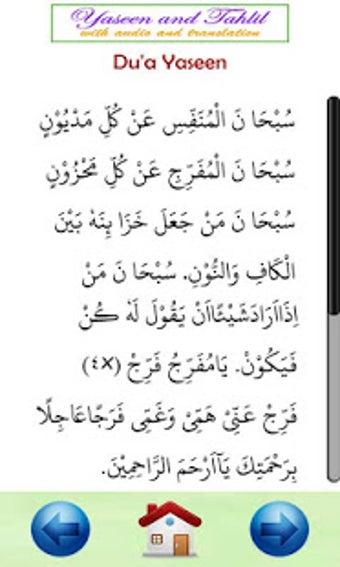 Yaseen and Tahlil
with audio and translation
Du'a Yaseen
سُبْحَا نَ الْمُنَفِّسِ عَنْ كُلِّ مَدْيُوْنٍ
سُبْحَا نَ الْمُفَرِّجِ عَنْ كُلِّ مَحْزُوْنٍ
سُبْحَا نَ مَنْ جَعَلَ خَزَا ىِٕنَهٗ بَيْنَ
الْكَافِ وَالنُّوْنِ. سُبْحَا نَ مَنْ
اِذَآاَرَادَشَيْئًااَنْ يَقُوْلَ لَهٗ كُنْ
فَيَكُوْنُ. يَامُفَرِّجُ فَرِّجْ (٤×)
فَرِّجْ عَنِّيْ هَمِّيْ وَغَمِّيْ فَرَجًاعَاجِلًا
بِرَحْمَتِكَ يَآاَرْحَمَ الرَّاحِمِيْنَ.